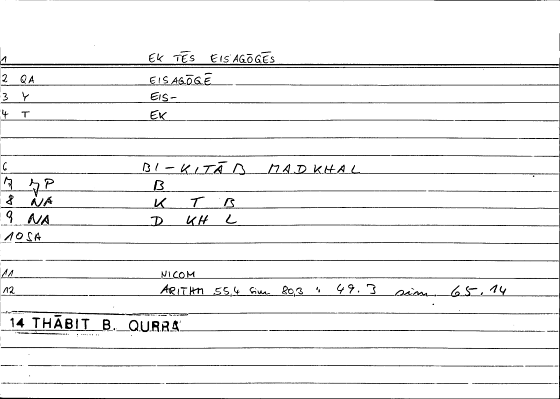 1 EK TĒS EISAGŌGĒS
2 QA EISAGŌGĒ
3 Y EIS-
4 T EK
6 BI-KITĀB MADKHAL
7 P B
8 NA K T B
9 NA D KH L
10 SA
11 NICOM
12 ARITHM 55,4 sim 80,3 49.3 sim 65.14
14 THĀBIT B. QURRA